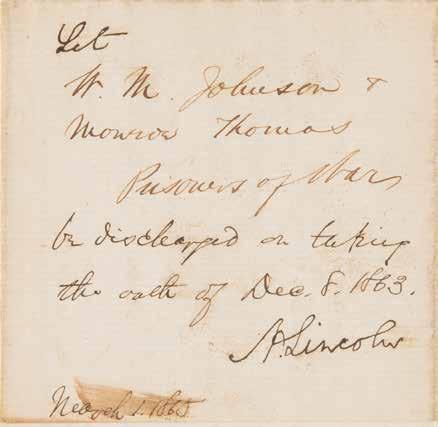 Let
W. M. Johnson &
Monroe Thomas
Prisoners of War
be discharged on taking
the oath of Dec. 8. 1863.
A. Lincoln
March 1. 1865